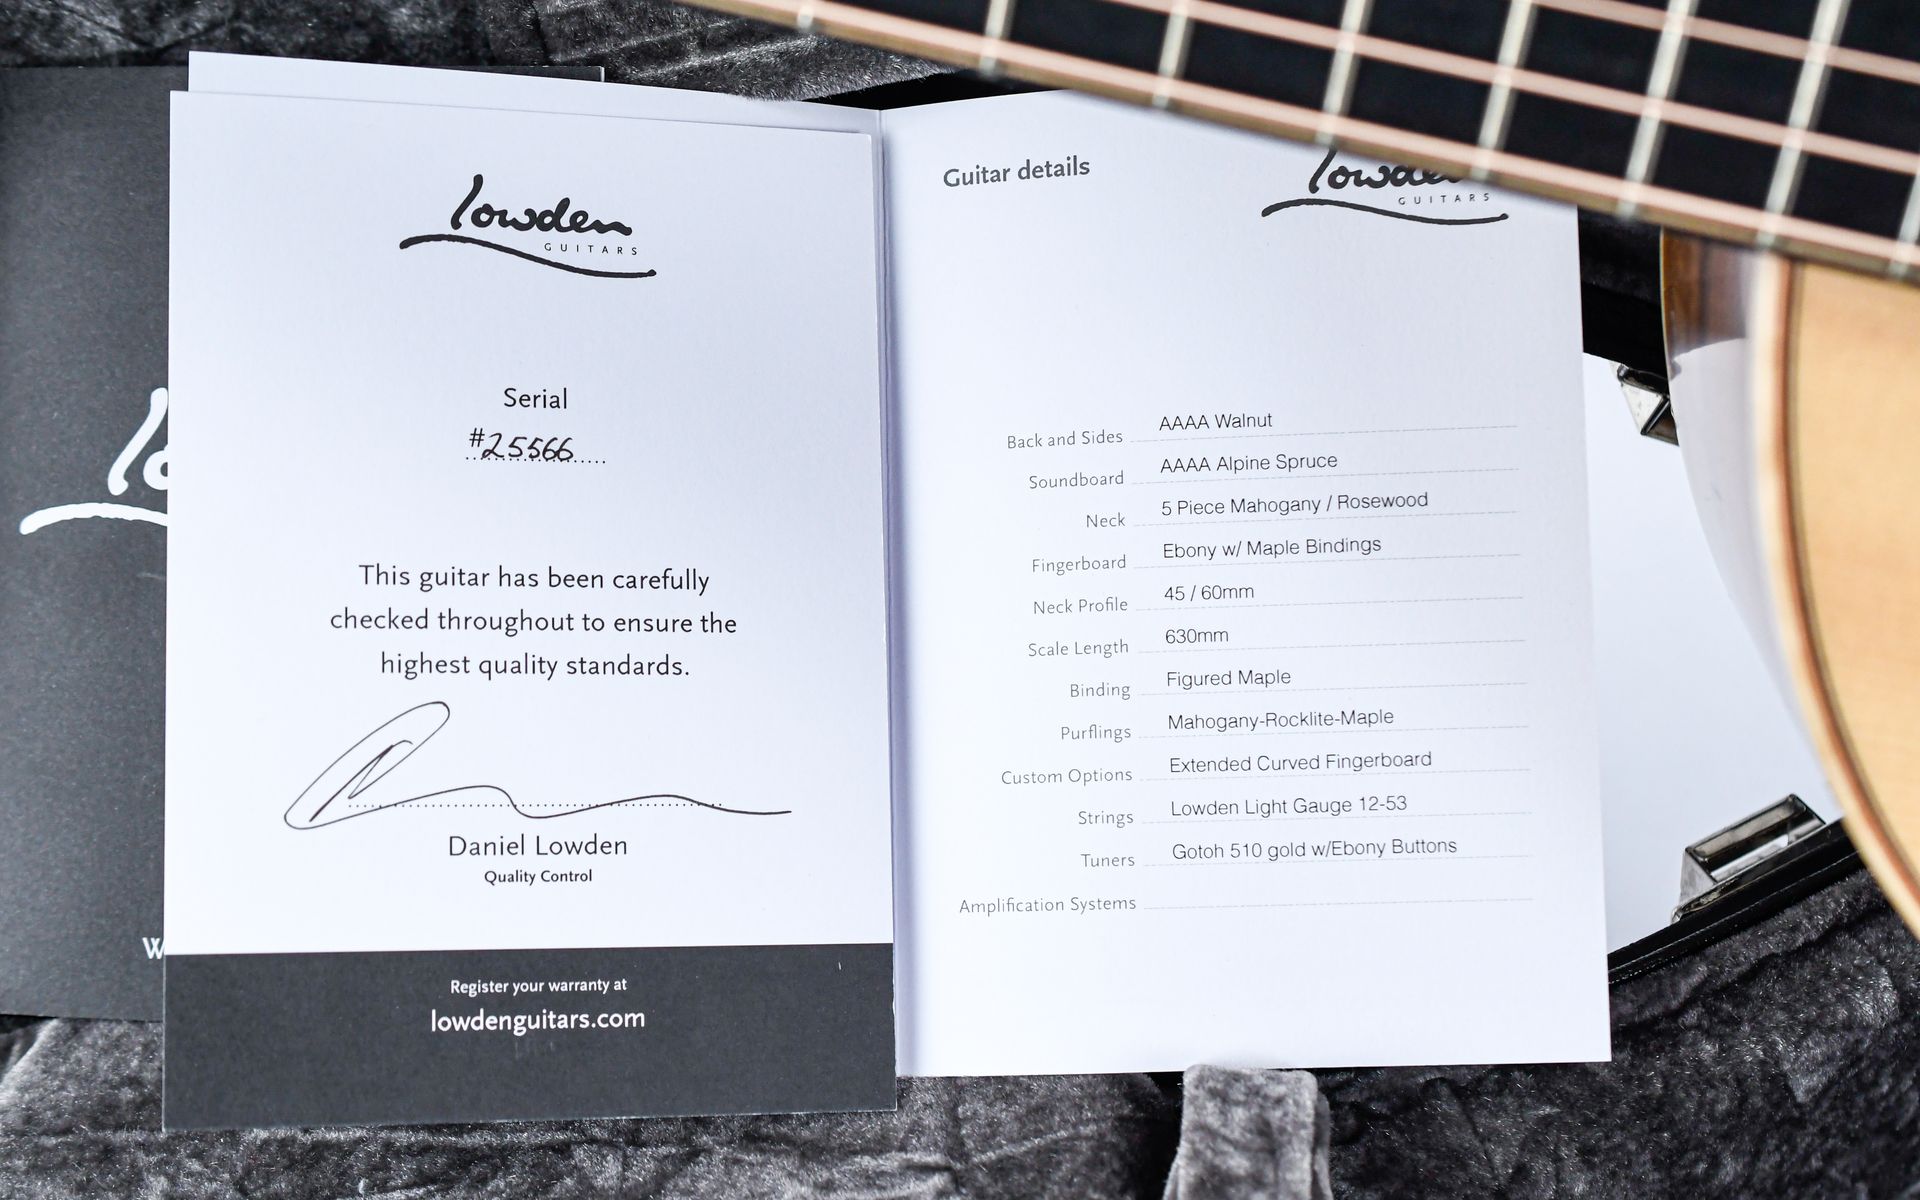 lowden
GUITARS
Serial
#25566
This guitar has been carefully
checked throughout to ensure the
highest quality standards.
Daniel Lowden
Quality Control
Register your warranty at
lowdenguitars.com
Guitar details
lowden
GUITARS
Back and Sides AAAA Walnut
Soundboard AAAA Alpine Spruce
Neck 5 Piece Mahogany / Rosewood
Fingerboard Ebony w/ Maple Bindings
Neck Profile 45 / 60mm
Scale Length 630mm
Binding Figured Maple
Purflings Mahogany-Rocklite-Maple
Custom Options Extended Curved Fingerboard
Strings Lowden Light Gauge 12-53
Tuners Gotoh 510 gold w/Ebony Buttons
Amplification Systems